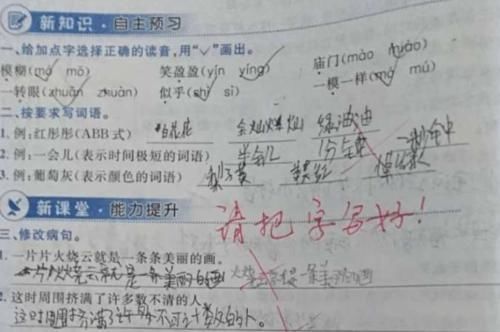 新知识·自主预习
一、给加点字选择正确的读音,用“✓”画出。
模糊(mó mō) 笑盈盈(yín yíng) 庙门(mào miào)
一转眼(zhuǎn zhuàn) 似乎(shì sì) 一模一样(mó mú)
二、按要求写词语。
1. 例:红彤彤(ABB式) 白花花 金灿灿 绿油油
2. 例:一会儿(表示时间极短的词语) 半会儿 1分钟 一秒钟
3. 例:葡萄灰(表示颜色的词语) 梨黄
请把字写好!
新课堂·能力提升
三、修改病句。
1. 一片片火烧云就是一条条美丽的画。
一片火烧云就是一条美丽的画 火烧云像一条美丽的画
2. 这时周围挤满了许多数不清的人。
这时周围挤满了许多不可计数的人。